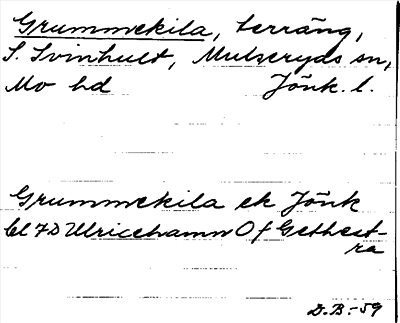 Grummekila, terräng,
S. Svinhult, Mulseryds sn,
Mo hd Jönk. l.
Grummekila ek Jönk
bl 7D Ulricehamn Of Gethest-
ra
D.B.-59